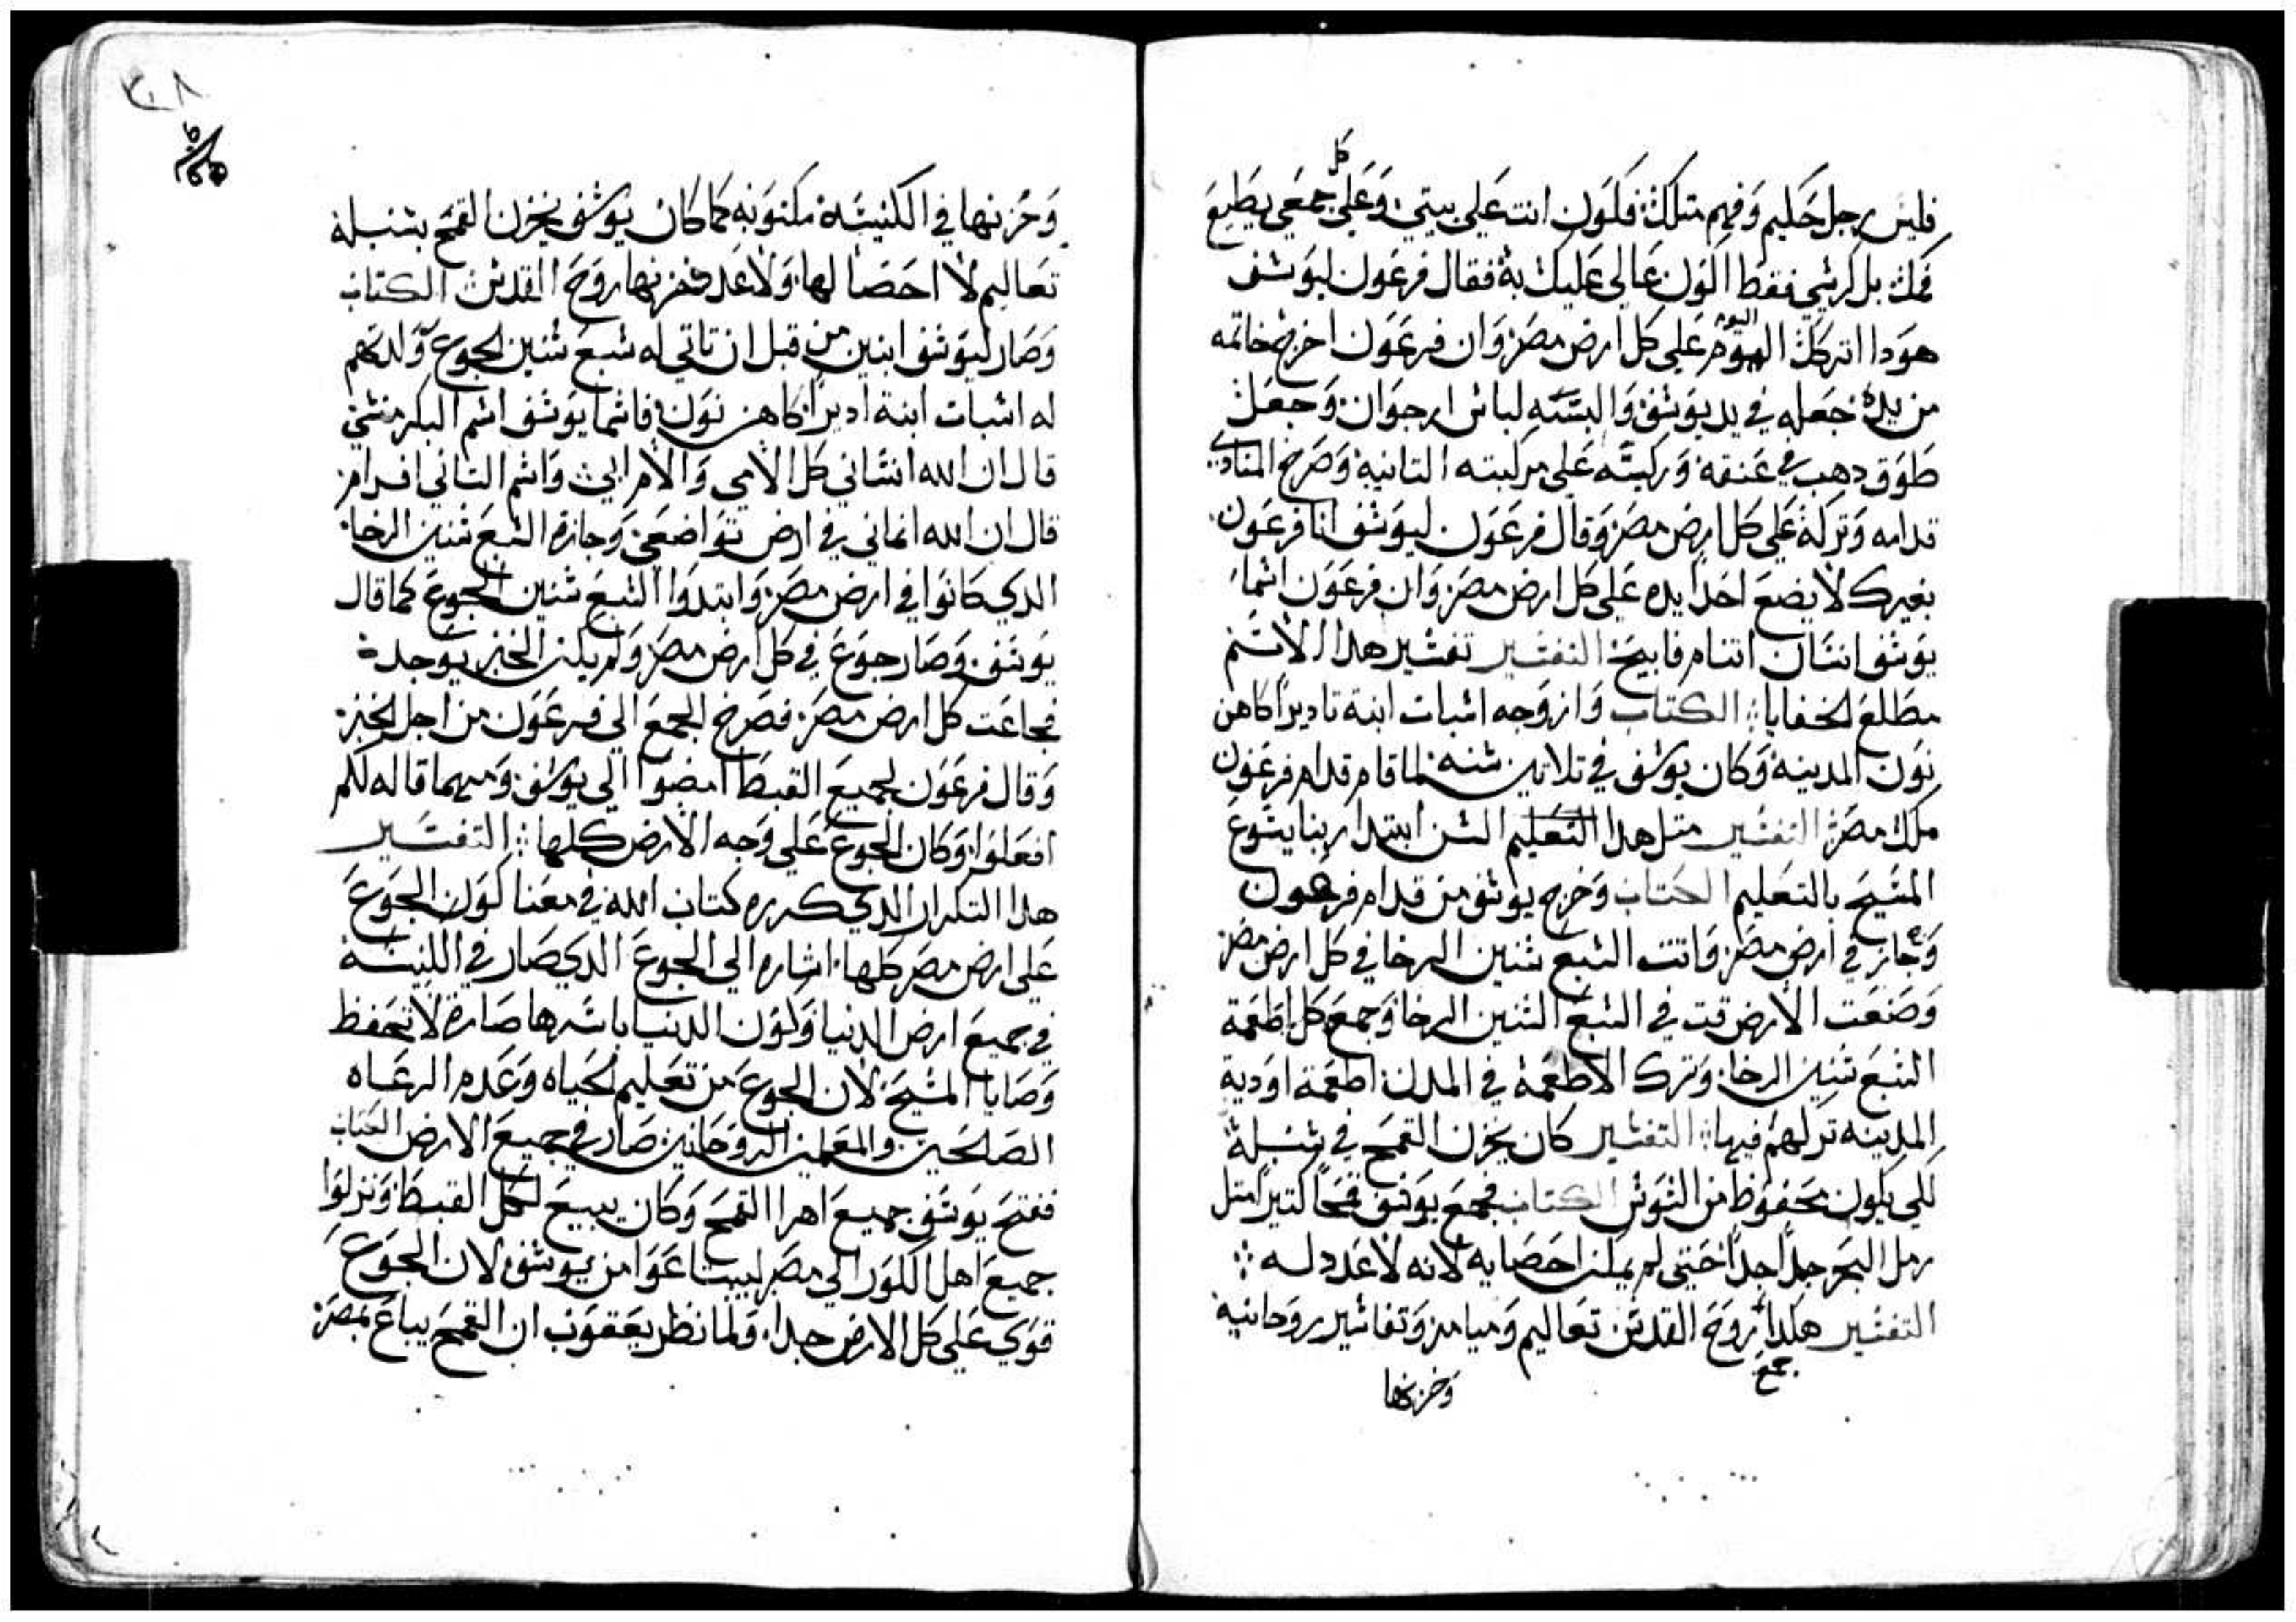 كل
فليس رجل حكيم وفهم متلك: فكون انت علي بيتي: وعلي جمعي يطيع
فمك: بل كرسي فقط اكون عالي عليك به: فقال فرعون ليوسف
اليوم
هودا اتركك علي كل ارض مصر: وان فرعون اخرج خاتمه
من يده: جعله في يد يوسف: والبسه لباس ارجوان: وجعل
طوق دهب في عنقه: وركبه علي مركبته التانية: وصرخ المنادي
قدامه وتركه علي كل ارض مصر: وقال فرعون ليوسف انا فرعون:
بغيرك لا يضع احدا يده علي كل ارض مصر: وان فرعون اسما
يوسف انسان اتنام فابيح: التفسير تفسير هدا الاسم
مطلع الخفايا: الكتاب وازوجه اسبات ابنة تاديرا كاهن
نون المدينة: وكان يوسف في تلاتين سنه: لما قام قدام فرعون
ملك مصر: التفسير متل هدا التعليم السن ابتدا ربنا يشوع
المسيح بالتعليم الكتاب وخرج يوسف من قدام فرعون
وجاز في ارض مصر: واتت السبع سنين الرخا في كل ارض مصر:
وصنعت الارض قت في السبع السنين الرخا: وجمع كل اطعمة
السبع سنين الرخا: وترك الاطعمة في المدن: اطعمة اودية
المدينه تركهم فيها: التفسير كان يخزن القمح في سنبلة
لكي يكون محفوظ من السوس الكتاب فجمع يوسف قمحا كتيرا متل
رمل البحر جدا جدا حتي لم يمكن احصايه لانه لا عدد له:
التفسير هكدا روح القدس: تعاليم وميامر وتفاسير روحانيه
جمع
وخزنها
وخزنها في الكنيسة: مكنونه كما كان يوسف يخزن القمح بسنبلة
تعاليم لا احصا لها: ولا عدد خزنها روح القدس: الكتاب
وصار ليوسف ابنين من قبل ان تاتي له سبع سنين الجوع ولدتهم
له اسبات ابنة اديرا كاهن نون: فاسما يوسف اسم البكر منسي
قال ان الله انساني كل الامي والام ابي: واسم التاني افرام:
قال ان الله انماني في ارض تواضعي: وجازة السبع سنين الرخا:
الدي كانوا في ارض مصر: وابتدوا السبع سنين الجوع كما قال
يوسف: وصار جوع في كل ارض مصر: ولم يكن الخبز يوجد:
فجاعت كل ارض مصر: فصرخ الجمع الي فرعون من اجل الخبز:
وقال فرعون لجميع القبط امضوا الي يوسف: ومهما قاله لكم
افعلوا: وكان الجوع علي وجه الارض كلها: التفسير
هدا التكرار الدي كرره كتاب الله في معنا كون الجوع
علي ارض مصر كلها: اشاره الي الجوع الدي صار في الكنيسة
في جميع ارض الدنيا: وكون الدنيا باسرها صارة لا تحفظ
وصايا المسيح: لان الجوع من تعليم الحياه وعدم الرعاه
الصالحين: والمعلمين الروحانين صار في جميع الارض الكتاب
ففتح يوسف جميع اهرا القمح وكان يبيع لكل القبط: ونزلوا
جميع اهل الكور الي مصر ليبتاعوا من يوسف: لان الجوع
قوي علي كل الارض جدا: ولما نظر يعقوب ان القمح يباع بمصر: